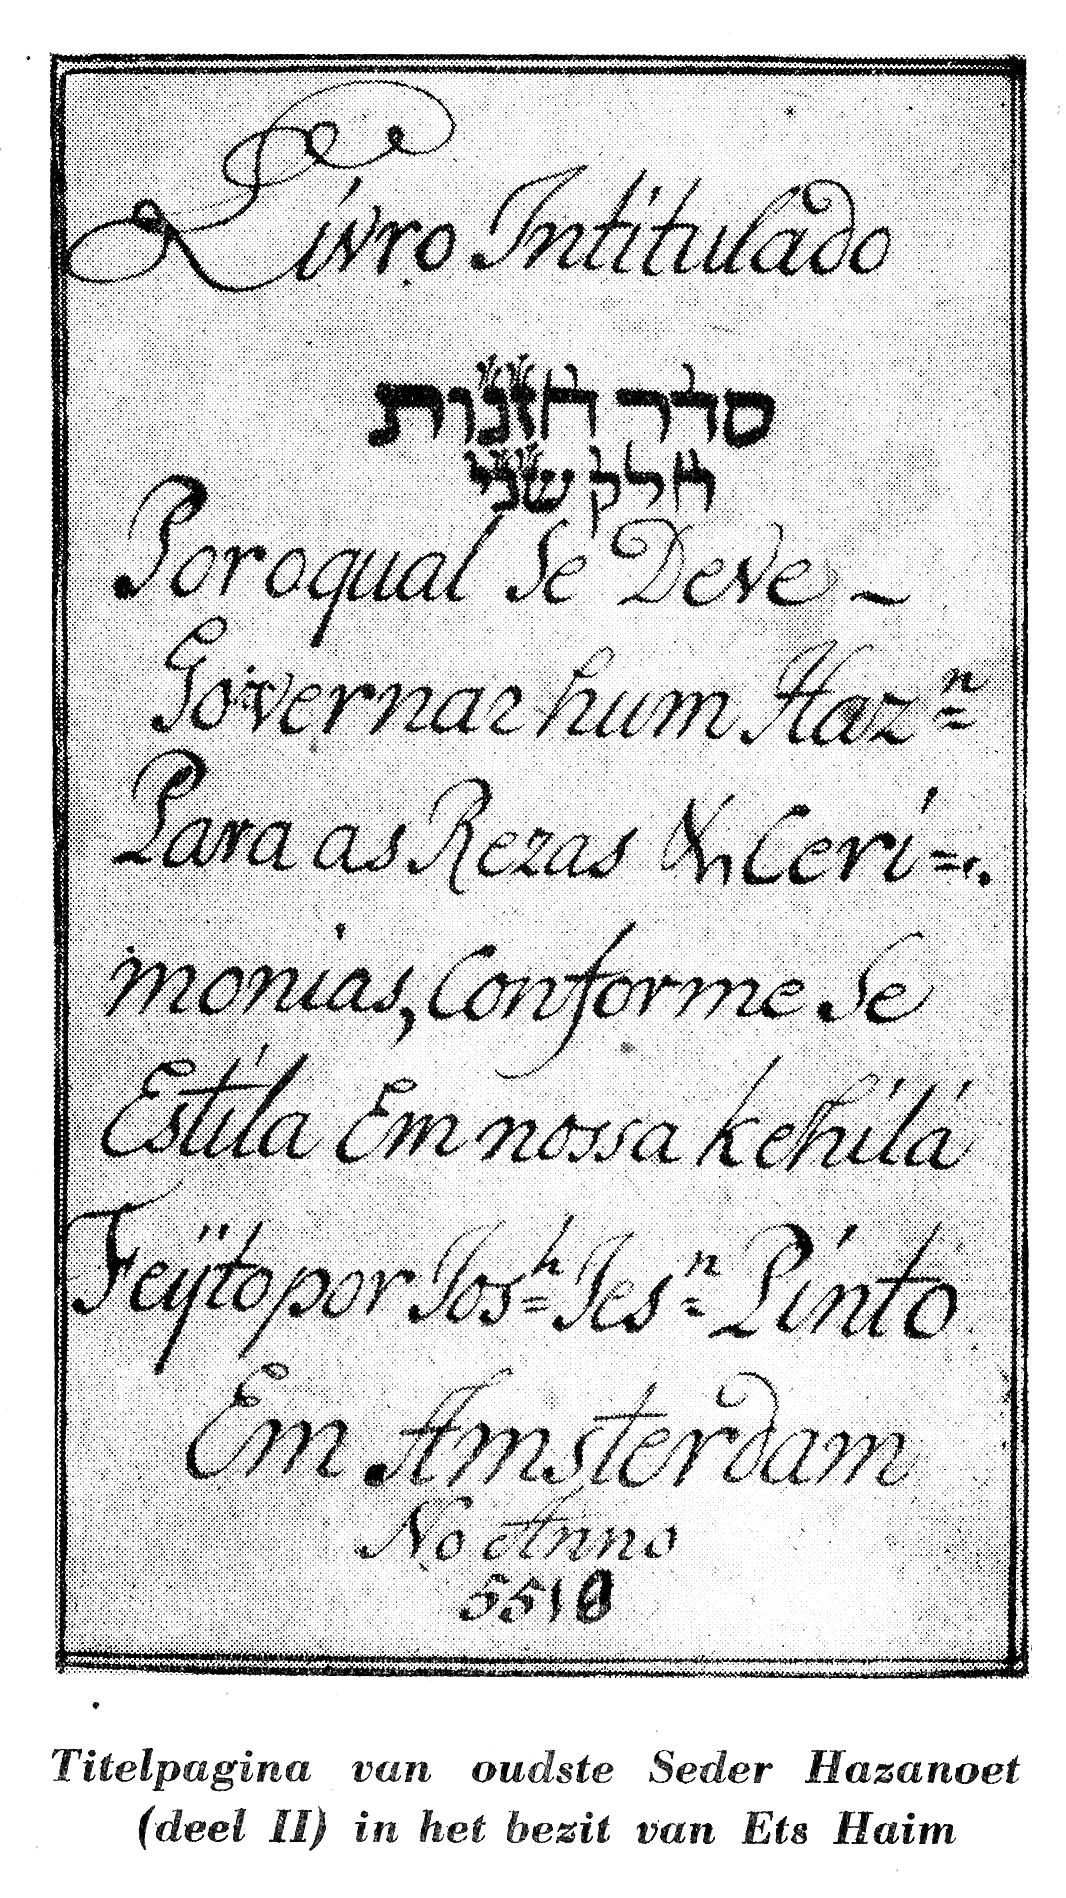 Livro Intitulado
סדר חזנות
חלק שני
Poroqual Se Deve ~
Governar hum Haz⁼ⁿ
Para as Rezas & Ceri=
monias, Conforme Se
Estila Em nossa kehilá
Feÿto por Jos⁼ʰ Jes⁼ⁿ Pinto
Em Amsterdam
No Anno
5510
Titelpagina van oudste Seder Hazanoet
(deel II) in het bezit van Ets Haim